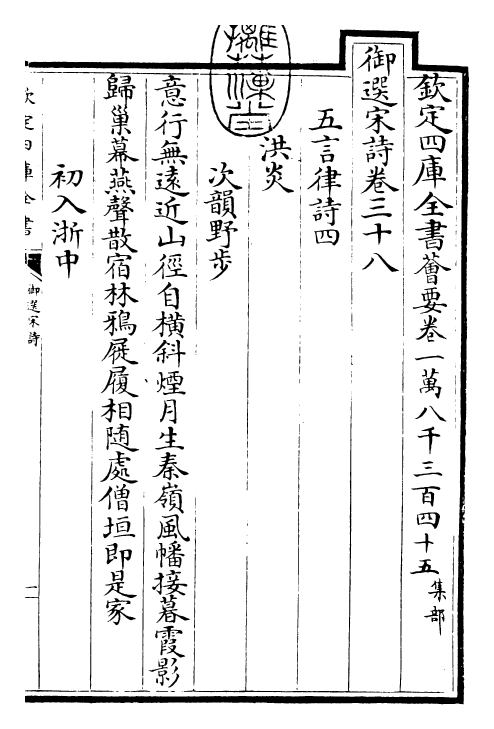 欽定四庫全書薈要卷一萬八千三百四十五 集部
御選宋詩卷三十八
五言律詩四
洪炎
次韻野步
意行無遠近山徑自橫斜煙月生秦嶺風幡接暮霞影
歸巢幕燕聲散宿林鴉屐履相隨處僧垣即是家
初入浙中
欽定四庫全書
御選宋詩
一